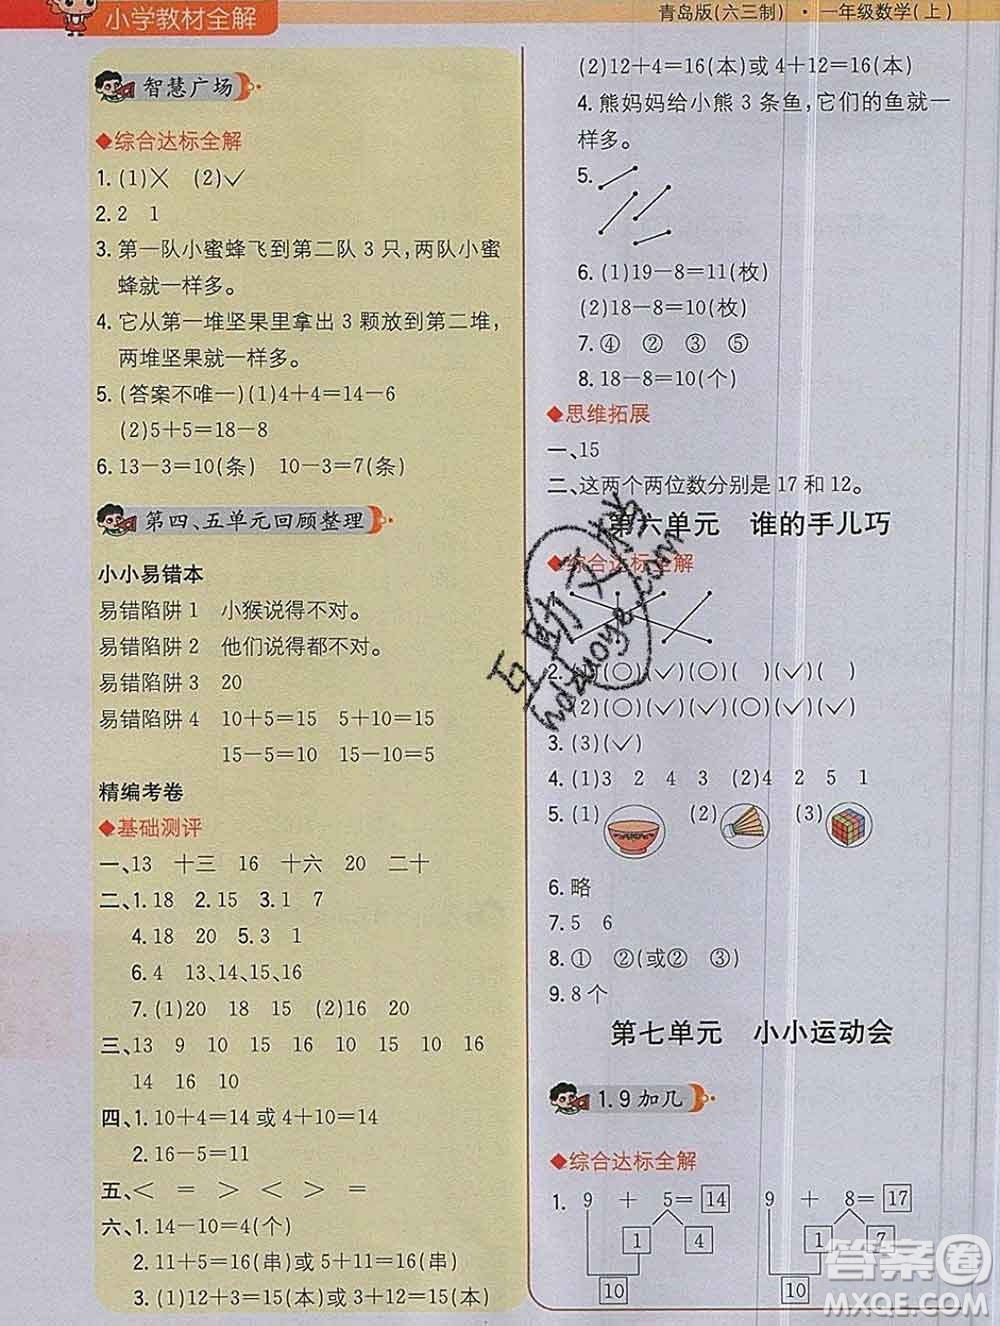 小学教材全解
青岛版(六三制)·一年级数学(上)
智慧广场
◆综合达标全解
1. (1)✕ (2)✓
2. 2 1
3. 第一队小蜜蜂飞到第二队 3 只,两队小蜜
蜂就一样多。
4. 它从第一堆坚果里拿出 3 颗放到第二堆,
两堆坚果就一样多。
5. (答案不唯一)(1)4+4=14-6
(2)5+5=18-8
6. 13-3=10(条) 10-3=7(条)
第四、五单元回顾整理
小小易错本
易错陷阱 1 小猴说得不对。
易错陷阱 2 他们说得都不对。
易错陷阱 3 20
易错陷阱 4 10+5=15 5+10=15
15-5=10 15-10=5
精编考卷
◆基础测评
一、13 十三 16 十六 20 二十
二、1. 18 2. 15 3. 1 7
4. 18 20 5. 3 1
6. 4 13、14、15、16
7. (1)20 18 15 (2)16 17
三、13 9 10 15 16 10 10 16
14 16 10
四、1. 10+4=14 或 4+10=14
2. 16-5=11
五、< = > < < =
六、1. 14-10=4(个)
2. 11+5=16(串)或 5+11=16(串)
3. (1)12+3=15(本)或 3+12=15(本)
(2)12+4=16(本)或 4+12=16(本)
4. 熊妈妈给小熊 3 条鱼,它们的鱼就一
样多。
5.
6. (1)19-8=11(枚)
(2)18-8=10(枚)
7. ④ ② ③ ⑤
8. 18-8=10(个)
◆思维拓展
一、15
二、这两个两位数分别是 17 和 12。
第六单元 谁的手儿巧
◆综合达标全解
2. (✓)(○)(✓)(○)( )(✓)( )
(2)(○)(✓)(✓)(○)(✓)(✓)
3. (3)(✓)
4. (1)3 2 4 3 (2)4 2 5 1
5. (1) (2) (3)
6. 略
7. 5 6
8. ① ②(或② ③)
9. 8 个
第七单元 小小运动会
1. 9 加几
◆综合达标全解
1. 9 + 5= 14 9 + 8= 17
1 4 1 7
10 10
互助文档
hdzuoye.com
答案圈
MXQE.COM